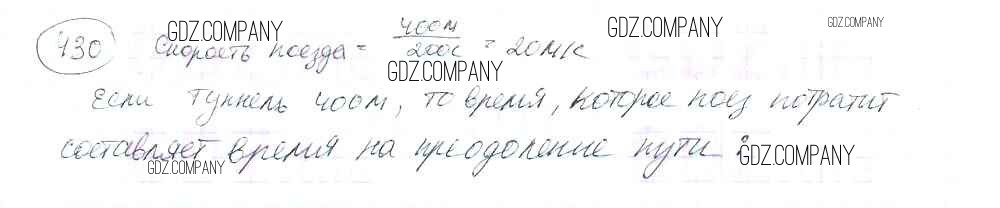 GDZ.COMPANY GDZ.COMPANY GDZ.COMPANY
430 Скорость поезда = 400м / 200с = 20м/с
GDZ.COMPANY
Если туннель 400м, то время, которое поез потратит
составляет время на преодоление пути :
GDZ.COMPANY GDZ.COMPANY